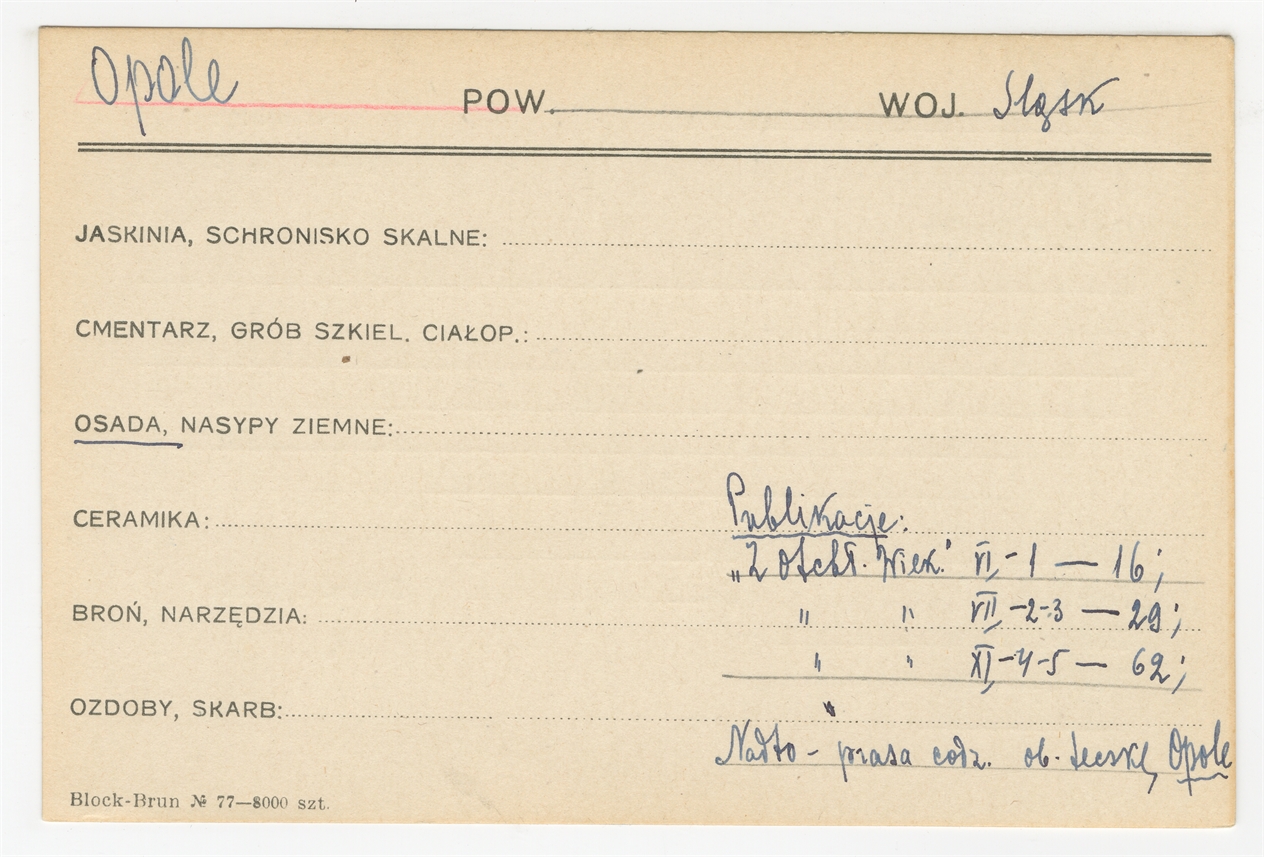 Opole POW. WOJ. Śląsk
JASKINIA, SCHRONISKO SKALNE:
CMENTARZ, GRÓB SZKIEL. CIAŁOP.:
OSADA, NASYPY ZIEMNE:
CERAMIKA: Publikacje:
„Z Otchł. Wiek." VI,-1 — 16;
BROŃ, NARZĘDZIA: " " VII,-2-3 — 29;
" " XI,-4-5 — 62;
OZDOBY, SKARB: "
Nadto - prasa codz. ob. teczkę, Opole
Block-Brun № 77—8000 szt.